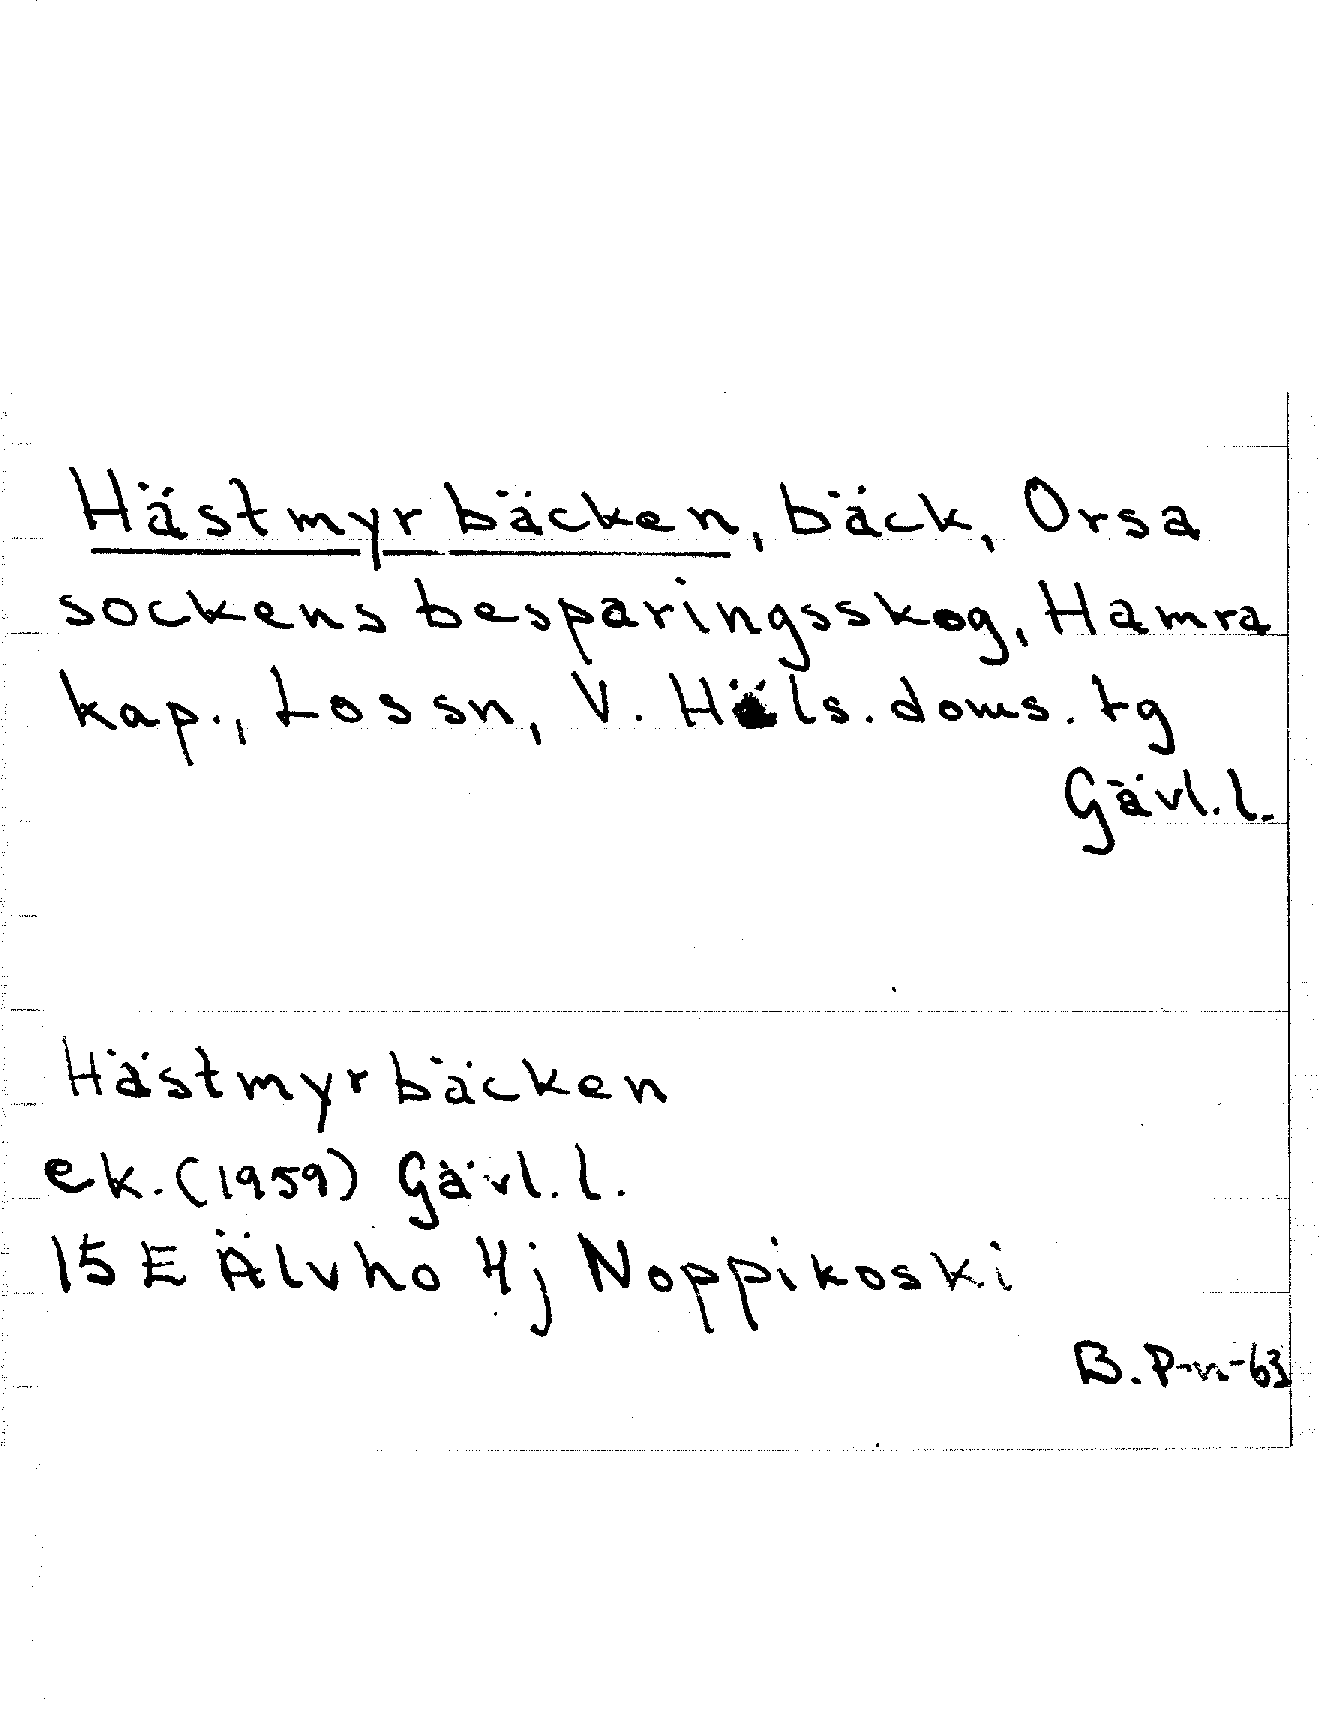 Hästmyrbäcken, bäck, Orsa
sockens besparingsskog, Hamra
kap., Lossn, V. Häls. doms. tg
Gävl. l.
Hästmyrbäcken
ek. (1959) Gävl. l.
15 E Älvho 4j Noppikoski
B. P-n-63